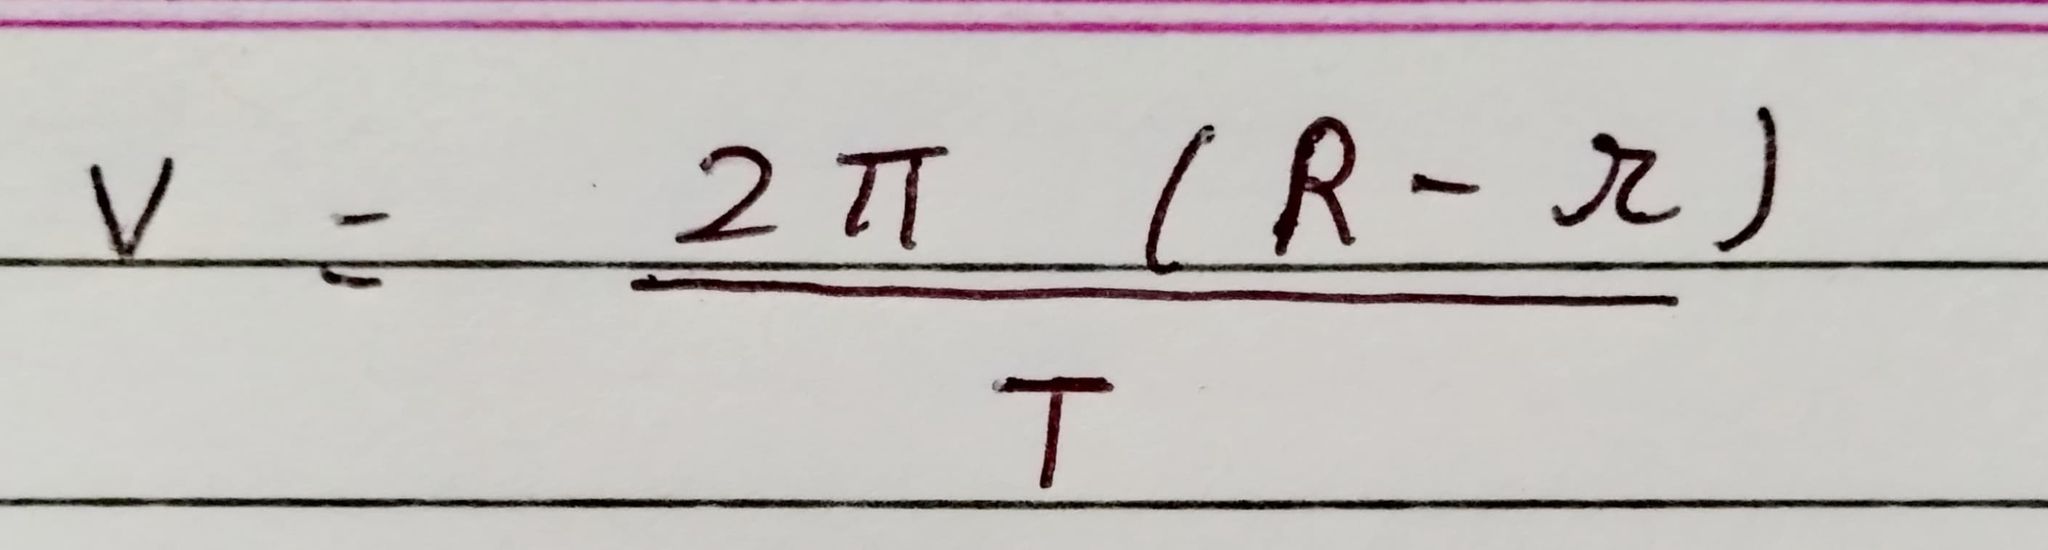 V = 2π (R - r)
T